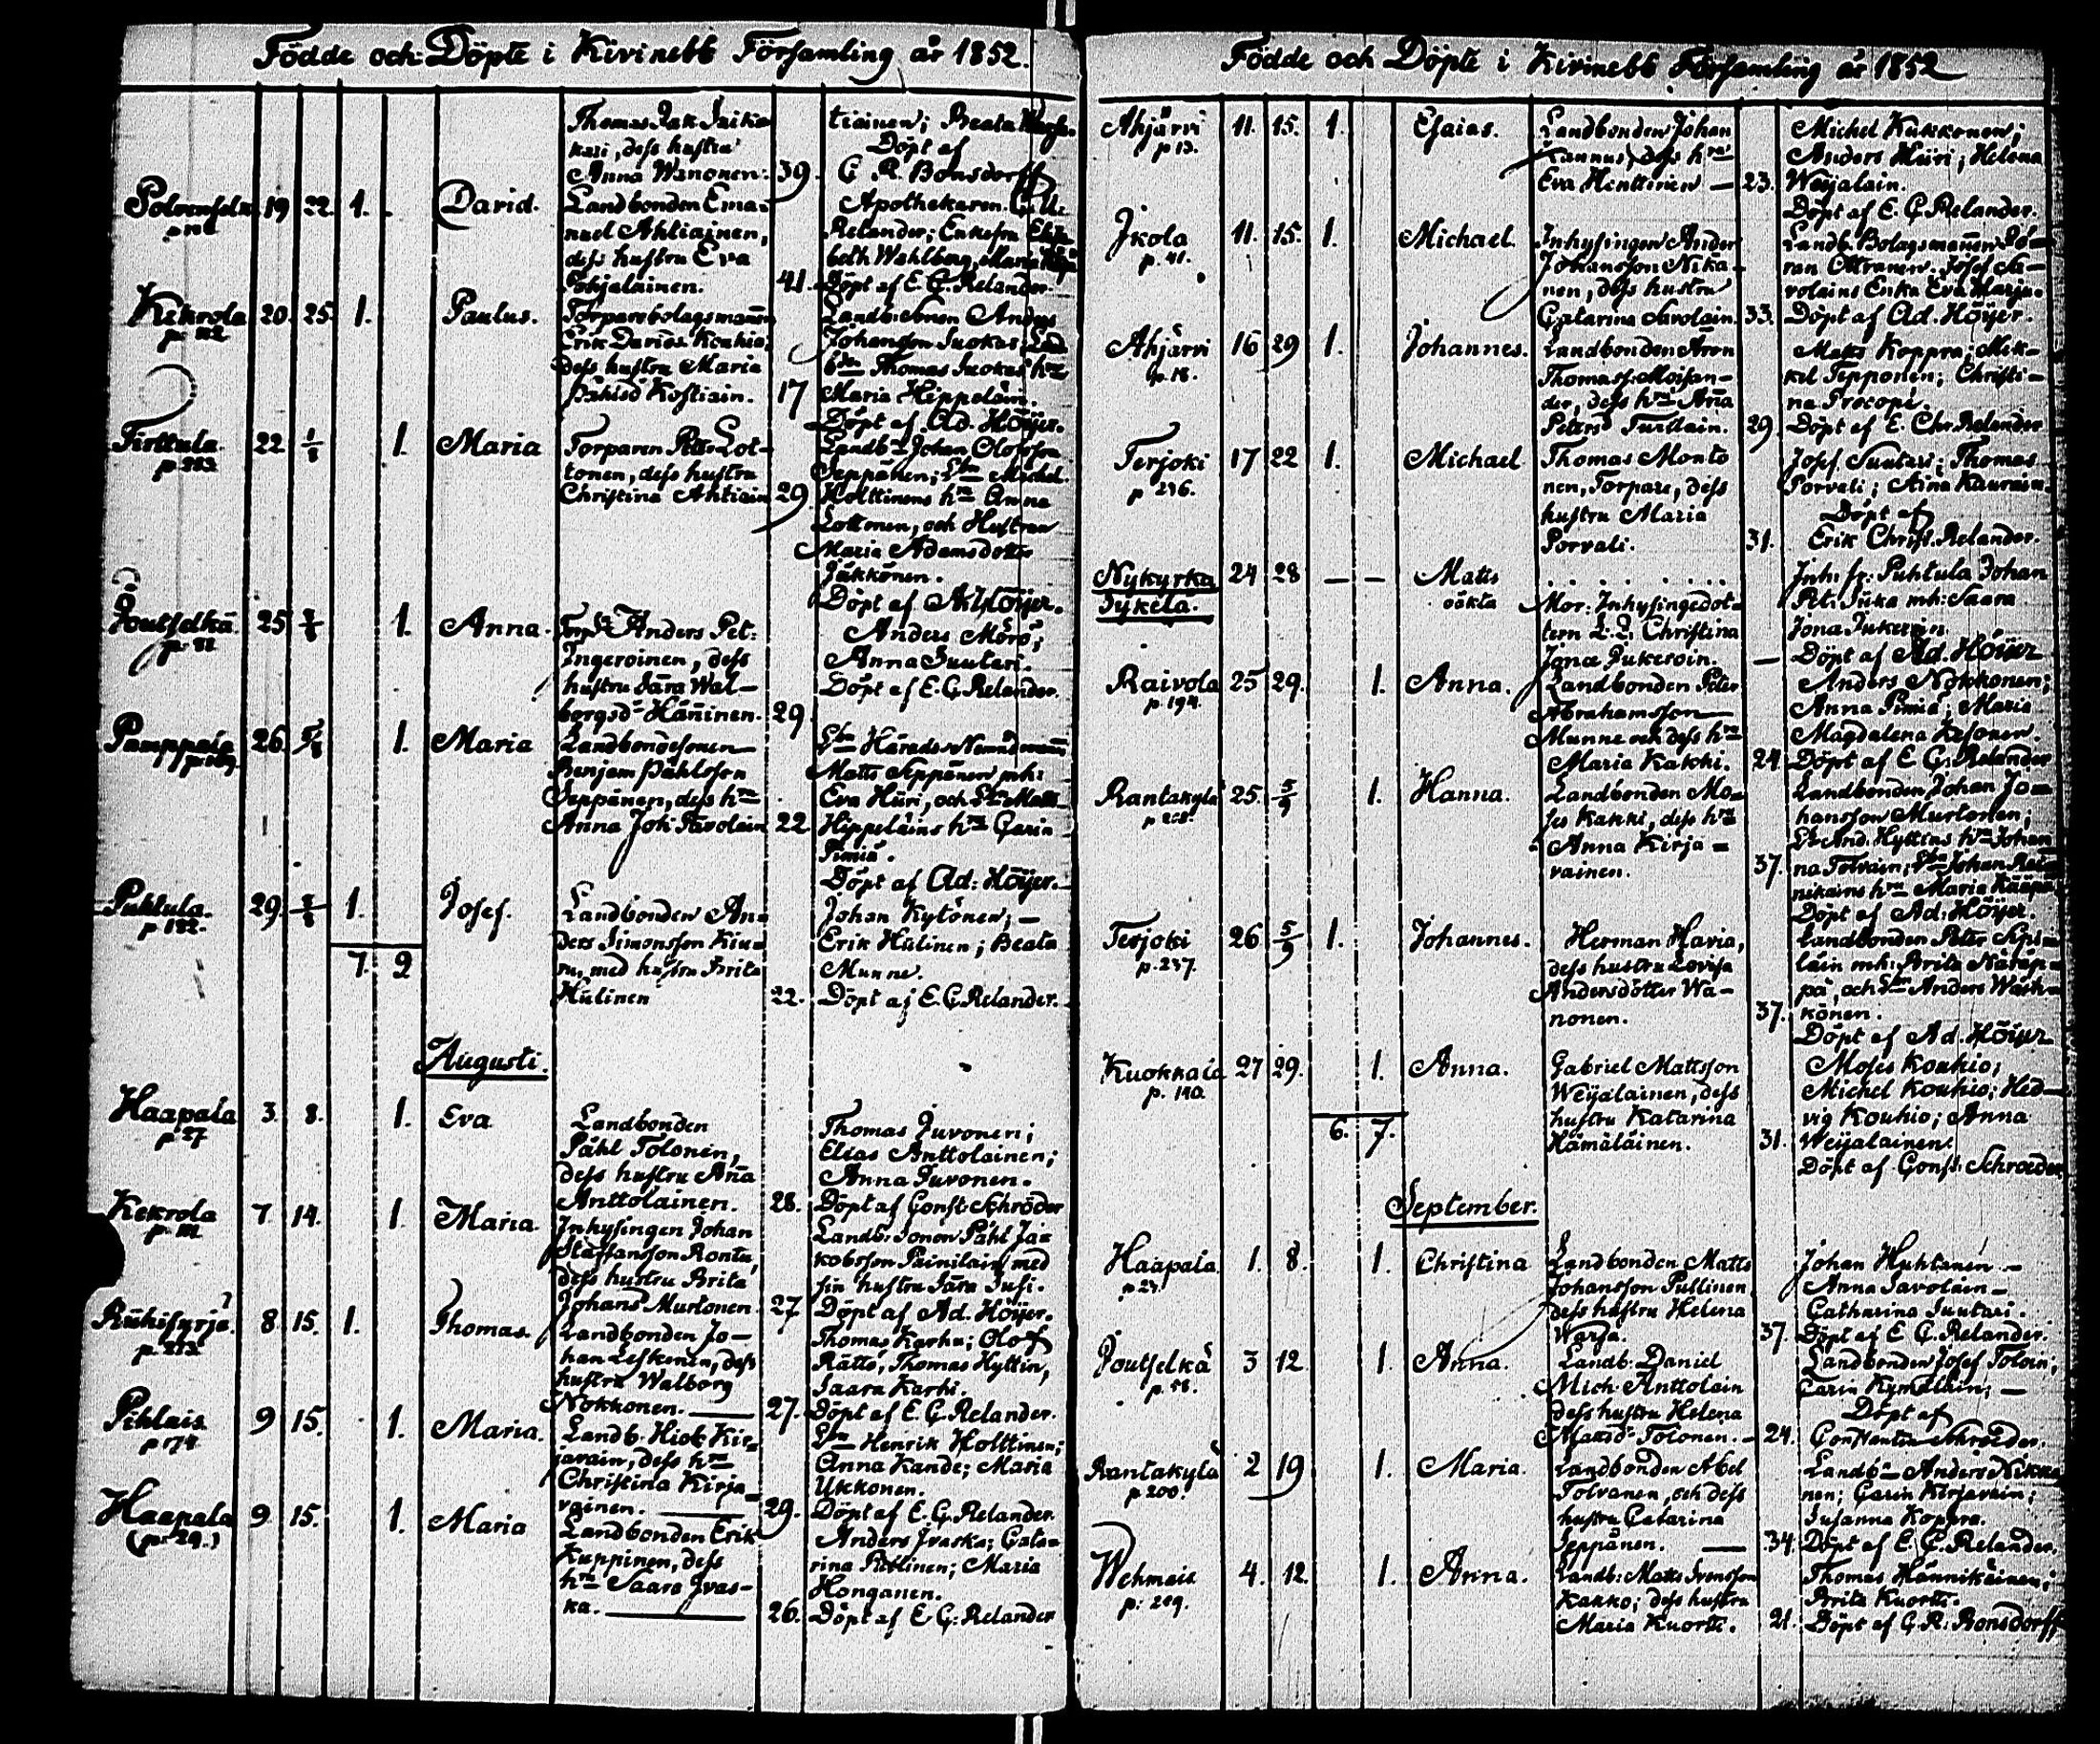 Födde och Döpte i Kivinebb Församling år 1852.
Thomas Isak
kari, dess hustru
Anna Wanonen. 39.
tiainen; Beata
Döpt af
C. R. Bonsdorff
19 22 1. David.
Landbonden Ema-
nuel Ahtiainen,
dess hustru Eva
Pohjalainen. 41.
Apothekaren
Relander; Enkefru
beth Wahlberg, Maria
Döpt af E. G. Relander
Kekrola 20. 25. 1. Paulus.
p. 112
Torparebolagsmannen
Erik Darios. Koukio,
dess hustru Maria
Påhlsd Kostiain. 17
Landb: sonen Anders
Johansson Suokas;
Thomas Suokas hru
Maria Hippeläin.
Döpt af Ad. Höijer.
Tirttula 22 1/8 1. Maria
Torparen Lot-
tonen, dess hustru
Christina Ahtiain 29
Landb: Johan Olofsson
Seppänen; Lbn Michel
Holttinens hru Anna
Lottonen, och Hustrun
Maria Adamsdotter
Jäkkönen.
Döpt af Ad Höijer.
Joutselkä 25 1. Anna.
p. 81
Anders Pet:
Ingeroinen, dess
hustru Sara Wal-
borgsd: Hänninen. 29
Anders Mörö;
Anna Suutari.
Döpt af E. G. Relander.
Pamppala 26. 5/8 1. Maria
Landbondesonen
Benjam Påhlsson
Seppänen, dess hru
Anna Joh: Savolain 22
Lbn Härads Nämndmann
Matts Seppänen mh:
Eva Hüri, och Lbn Matts
Hippeläins hru Carin
Pimiä.
Döpt af Ad: Höijer.
Puhtula. 29. 1. Josef.
p 122.
Landbonden An-
ders Simonsson Kiu-
ru, med hustru Brita
Hulinen 22.
Johan Kytönen; —
Erik Hulinen; Beata
Munne.
Döpt af E. G. Relander.
7. 9
Augusti.
Haapala 3. 8. 1. Eva
p 27
Landbonden
Påhl Tolonen,
dess hustru Aña
Anttolainen. 28.
Thomas Juvonen;
Elias Anttolainen;
Anna Juvonen.
Döpt af Const: Schröder
Kekrola 7. 14. 1. Maria.
Inhysingen Johan
Staffansson Rontu,
dess hustru Brita
Johansd Murtonen. 27
Landb: Sonen Påhl Ja-
kobsson Painilain med
sin hustru Sara Susi.
Döpt af Ad. Höijer.
8. 15. 1. Thomas.
p. 213.
Landbonden Jo-
han Leskinen, dess
hustru Walborg
Nokkonen. 27.
Thomas Karhu; Olof
Rättö; Thomas Hyttin,
Saara Karhi.
Döpt af E. G. Relander.
Pihlais 9 15. 1. Maria.
p 174.
Landb. Kir-
javain, dess hru
Christina Kirja-
vainen. 29.
Lbn Henrik Holttinen;
Anna Kande; Maria
Ukkonen.
Döpt af E. G. Relander.
Haapala 9 15. 1. Maria
(p: 29.)
Landbonden Erik
Kuppinen, dess
hru Saara Ivas-
ka. 26.
Anders Ivaska; Cata-
rina Pullinen; Maria
Honganen.
Döpt af E G: Relander
Födde och Döpte i Kivinebb Församling år 1852
Ahjärvi 11. 15. 1. Esaias.
p 13.
Landbonden Johan
Kannus, dess hru
Eva Henttinen — 23.
Michel Kukkonen;
Anders Hüri; Helena
Weijalain.
Döpt af E. G. Relander.
Ikola 11. 15. 1. Michael.
p. 41.
Inhysingen Anders
Johansson Nika-
nen, dess hustru
Catarina Savolain. 33.
Landb. Bolagsmannen
Josef Sa-
volains Enka Eva
Döpt af Ad. Höijer.
Ahjärvi 16 29 1. Johannes.
p. 18.
Landbonden Aron
Thomass: Moisan-
der, dess hru Aña
Petersd Turtiain. 29
Matts Koppra; Mik-
kel Tepponen; Christi-
na Procopé.
Döpt af E. Chr. Relander
Terjoki 17 22 1. Michael
p 236.
Thomas Monto
nen, Torpare, dess
hustru Maria
Porvali. 31.
Josef Suutari; Thomas
Porvali; Aina
Döpt af
Erik Christ. Relander.
Nykyrka 24 28 — — Matts
Sykelä. oäkta
Mor: Inhysingedot-
tern Christina
Jona Jukeroin. —
Inh. fr: Puhtula Johan
mh: Saara
Jona Jukeroin.
Döpt af Ad. Höijer
Raivola 25 29. 1. Anna.
p. 194.
Landbonden Peter
Abrahamsson
Munne och dess hru
Maria Kakki. 24.
Anders Nokkonen;
Anna Pimiä; Maria
Magdalena Kesonen.
Döpt af E G: Relander
Rantakylä 25. 5/9 1. Hanna.
Landbonden Mo-
ses Kakki, dess hru
Anna Kirja-
vainen. 37.
Landbonden Johan Jo-
hansson Murtonen;
And. Hyttins hru Johan
na Tolvain; Lbn Johan
nikains hru Maria
Döpt af Ad: Höijer.
Terjoki 26 5/9 1. Johannes.
p. 237.
Herman Havia,
dess hustru Lovisa
Andersdotter Wa-
nonen. 37.
Landbonden Peter
läin mh: Brita
pä, och Lbn Anders
könen.
Döpt af Ad. Höijer
Kuokkala 27 29. 1. Anna.
p. 140.
Gabriel Mattsson
Weijalainen, dess
hustru Katarina
Hämäläinen. 31.
Moses Koukio;
Michel Koukio; Hed-
vig Koukio; Anna
Weijalainen.
Döpt af Const: Schroeder
6. 7.
September.
Haapala. 1. 8. 1. Christina
Landbonden Matts
Johansson Pullinen
dess hustru Helena
Warsa. 37.
Johan Huhtanen —
Anna Savolain —
Catharina Suutari.
Döpt af E G. Relander.
Joutselkä 3 12. 1. Anna.
p. 88.
Landb: Daniel
Mich: Anttolain
dess hustru Helena
Mattsd: Tolonen. 24.
Landbonden Josef Toloin;
Carin Kymäläin; —
Döpt af
Constantin Schroeder.
Rantakylä 2 19 1. Maria.
p 200.
Landbonden Abel
Tolvanen, och dess
hustru Catarina
Seppänen. — 34.
Landb: Anders Nikka
nen; Carin Kirjavain;
Susanna Koppra.
Döpt af E. G. Relander.
Wehmais 4. 12. 1. Anna.
p: 219.
Landb: Matts Svensson
Kakko; dess hustru
Maria Kuortti. 21.
Thomas Hännikäinen;
Brita Kuortti.
Döpt af C. R: Bonsdorff